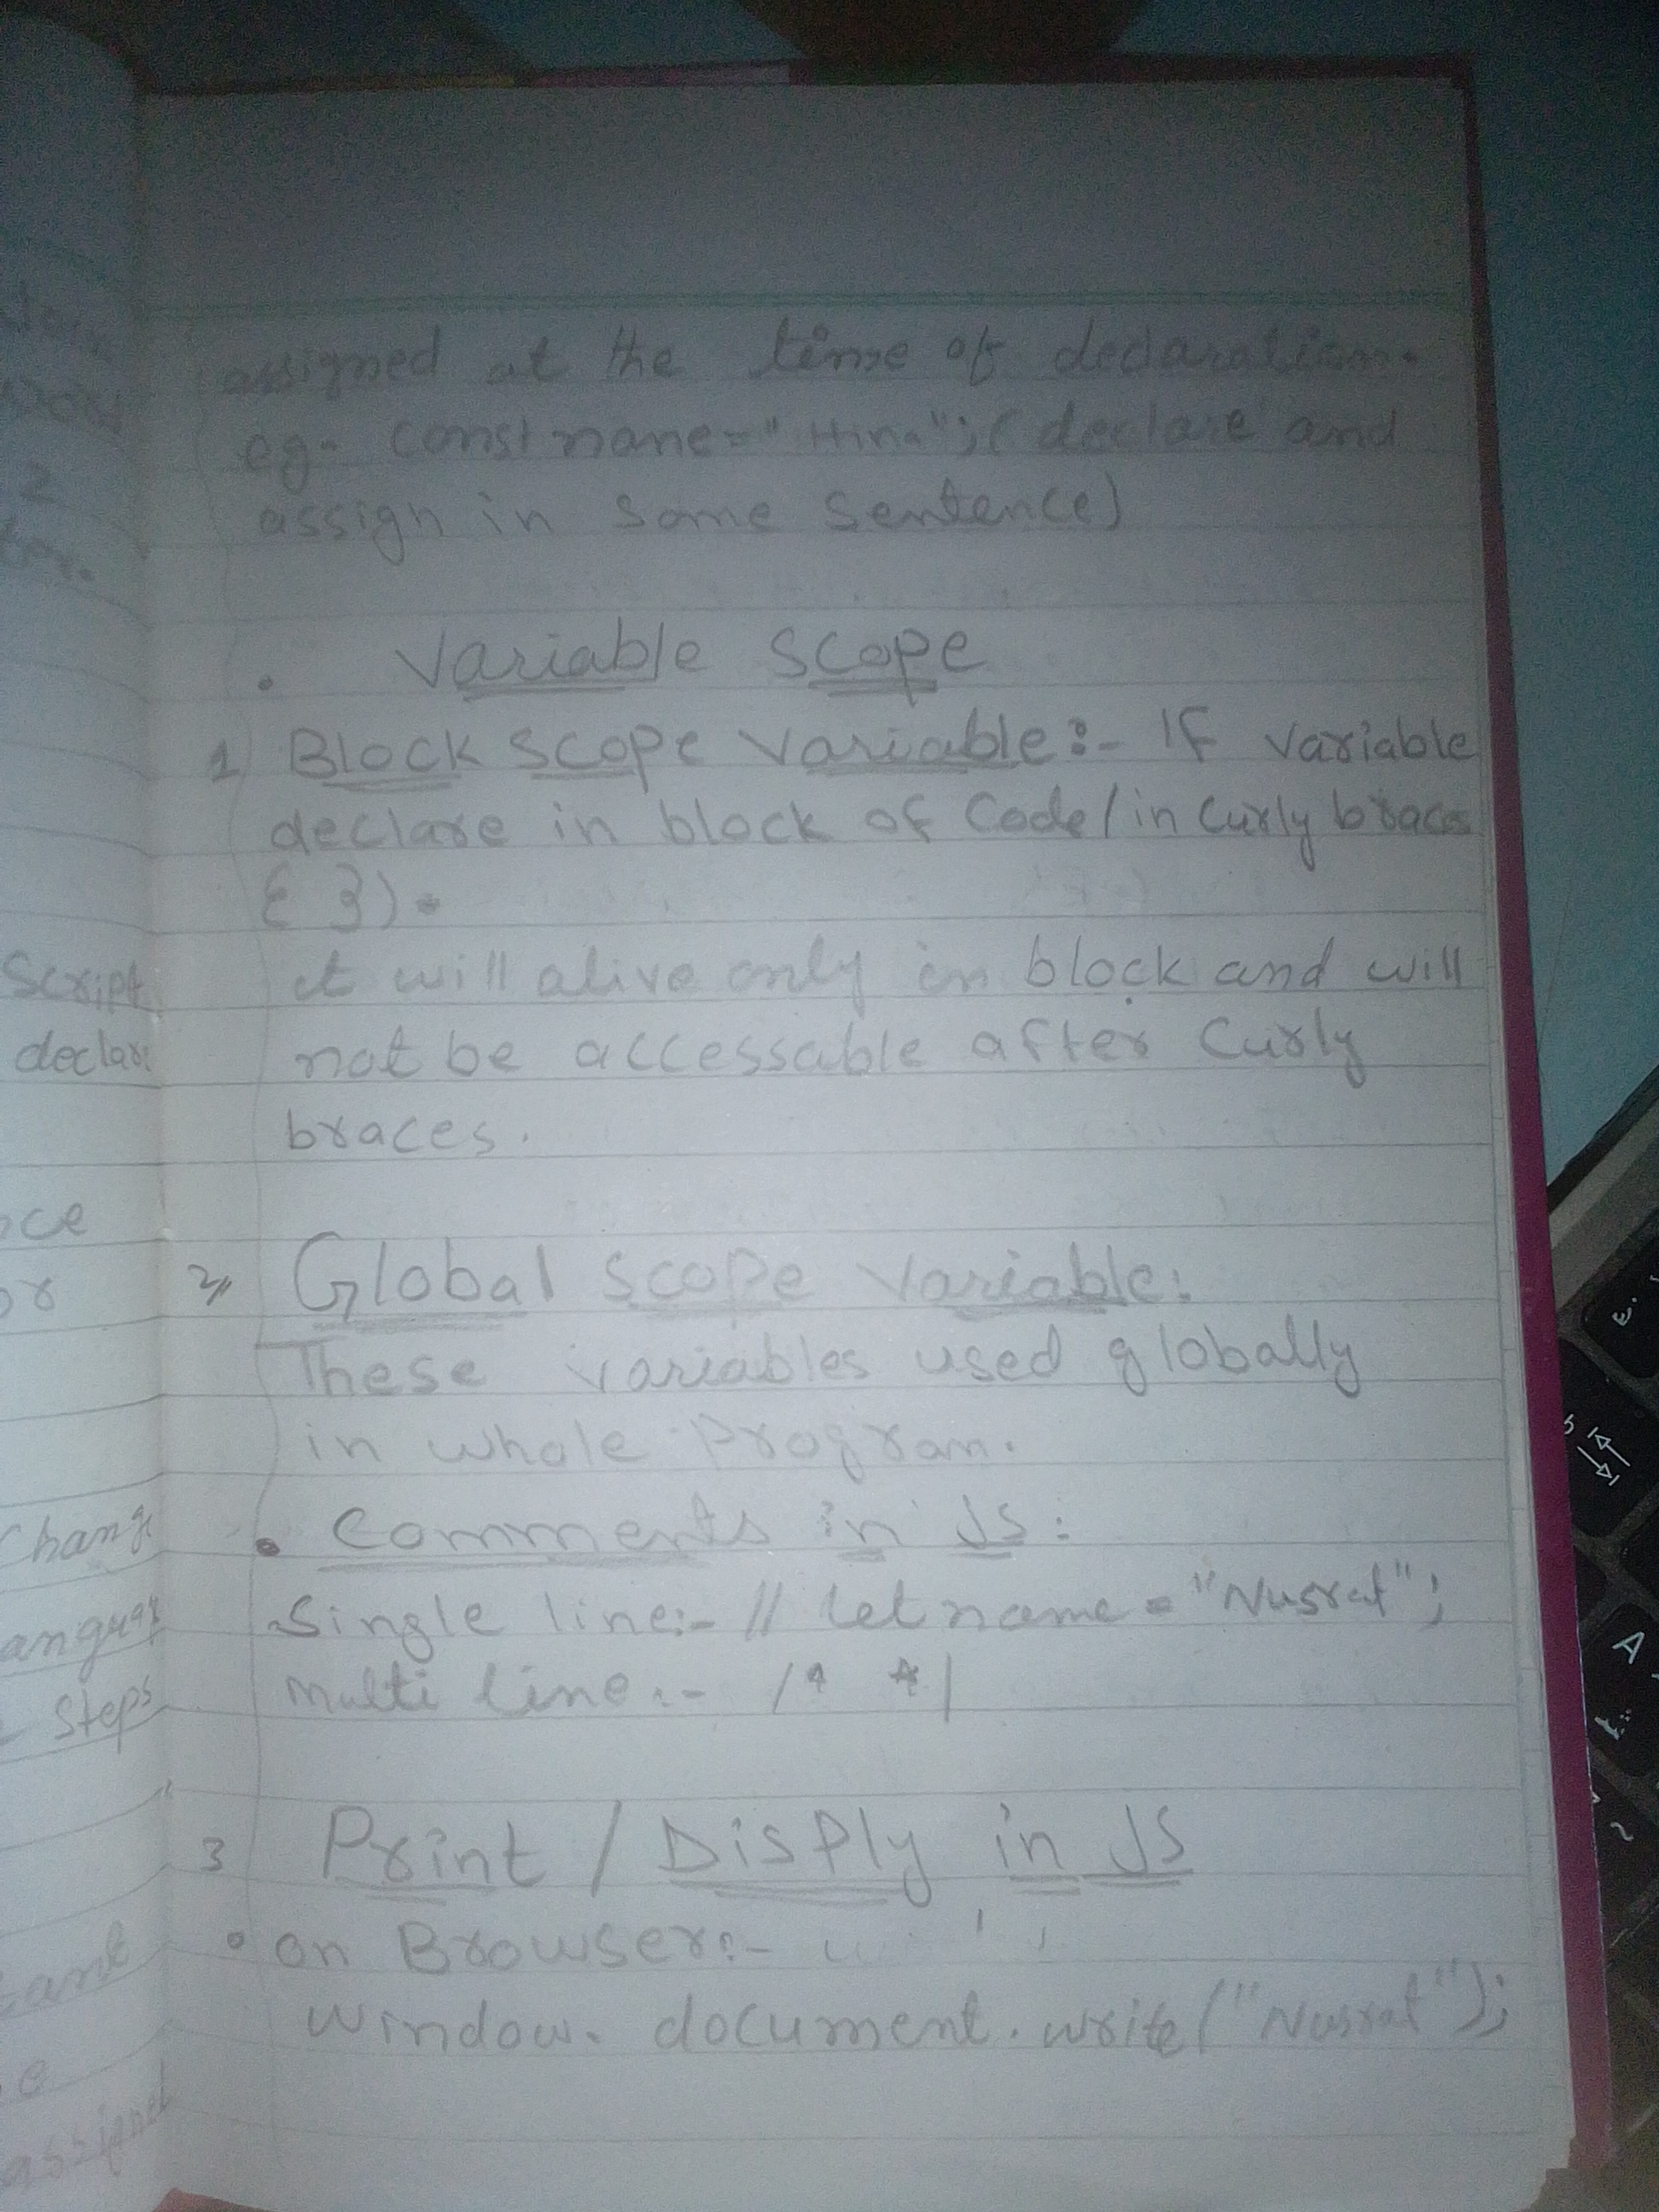 assigned at the time of declaration.
eg- const name="Hina";( declare and
assign in same sentence)
. Variable scope
1) Block scope variable:- If variable
declare in block of code/in curly braces
{ }).
it will alive only in block and will
not be accessable after curly
braces.
2, Global scope variable:
These variables used globally
in whole Program.
• Comments in Js:
Single line:- // let name = "Nusrat";
multi line:- /* */
3 Print / Disply in JS
• on Browser:-
window. document.write("Nusrat");
Script
declar
Chang
Steps
assigned